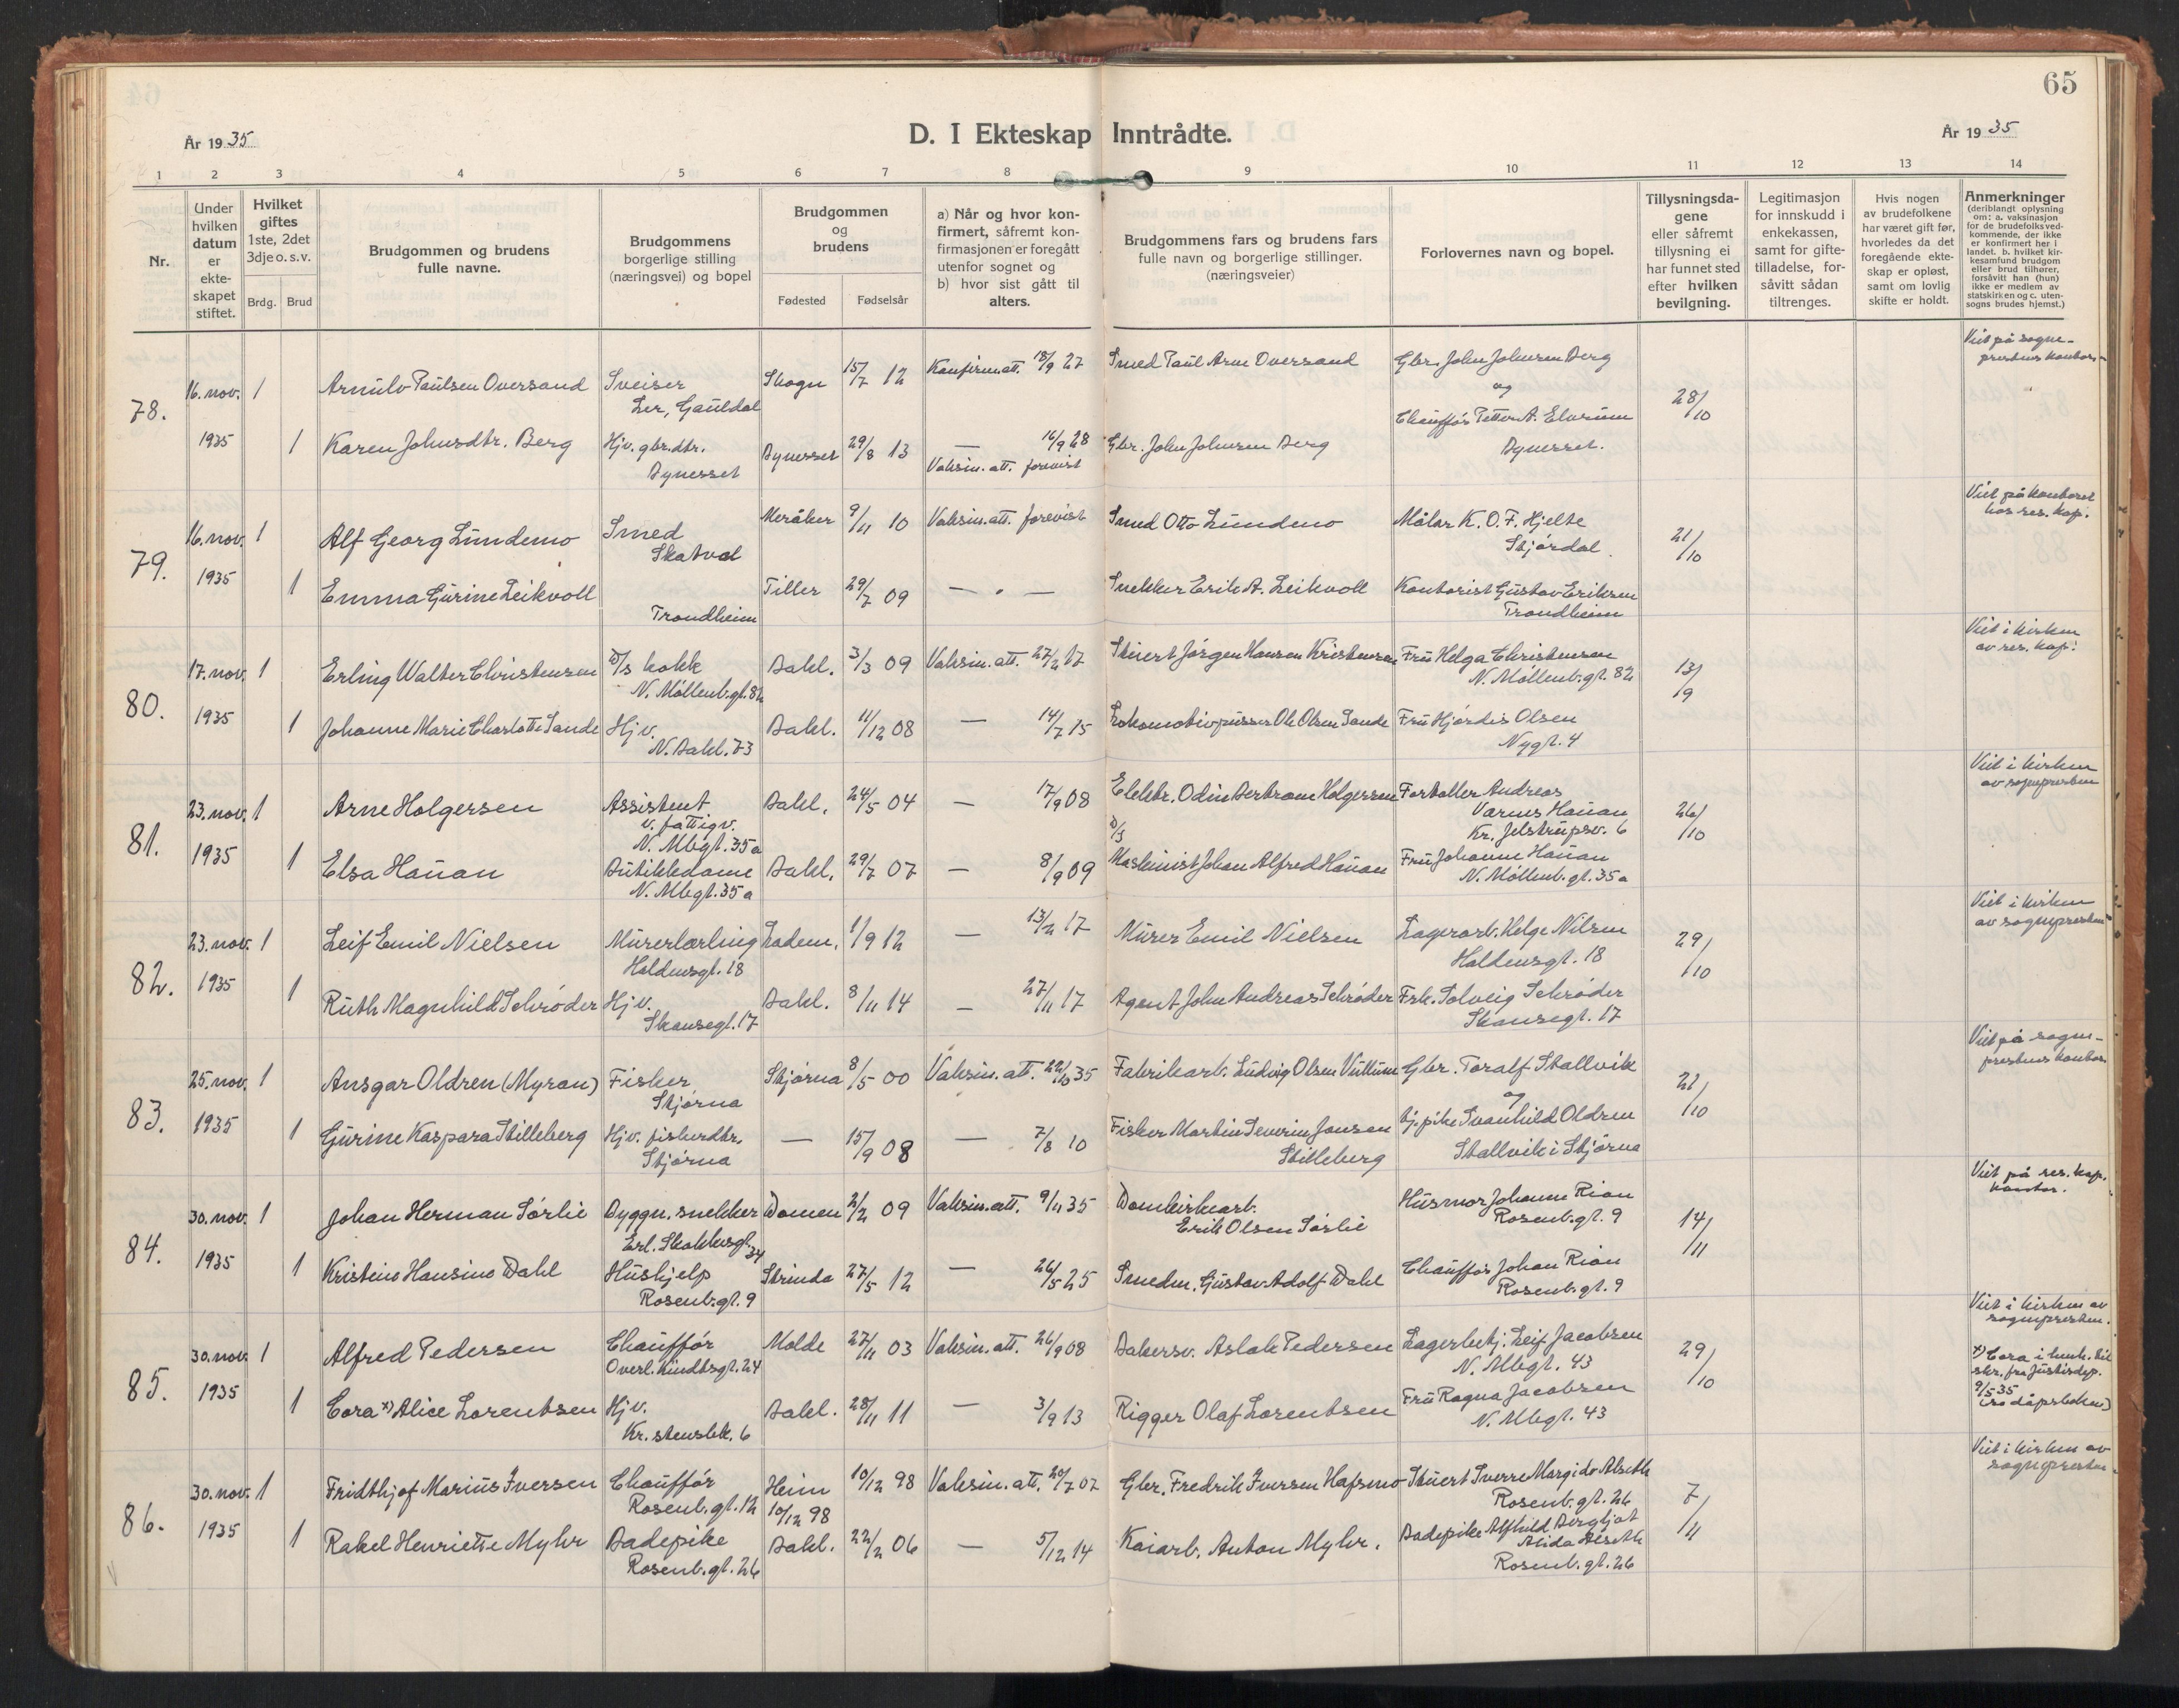 65
År 19 35
D. I Ekteskap Inntrådte.
År 19 35
1 2 3 4 5 6 7 8 9 10 11 12 13 14
Nr.
Under hvilken datum er ekteskapet stiftet.
Hvilket giftes 1ste, 2det 3dje o. s. v.
Brdg. Brud
Brudgommen og brudens fulle navne.
Brudgommens borgerlige stilling (næringsvei) og bopel
Brudgommen og brudens
Fødested Fødselsår
a) Når og hvor konfirmert, såfremt konfirmasjonen er foregått utenfor sognet og b) hvor sist gått til alters.
Brudgommens fars og brudens fars fulle navn og borgerlige stillinger. (næringsveier)
Forlovernes navn og bopel.
Tillysningsdagene eller såfremt tillysning ei har funnet sted efter hvilken bevilgning.
Legitimasjon for innskudd i enkekassen, samt for giftetilladelse, forsåvitt sådan tiltrenges.
Hvis nogen av brudefolkene har været gift før, hvorledes da det foregående ekteskap er opløst, samt om lovlig skifte er holdt.
Anmerkninger (deriblandt oplysning om: a. vaksinasjon for de brudefolks vedkommende, der ikke er konfirmert her i landet. b. hvilket kirkesamfund brudgom eller brud tilhører, forsåvitt han (hun) ikke er medlem av statskirken og c. utensogns brudes hjemst.)
78. 16. nov. 1935
1 Arnulv Paulsen Oversand Sveiser Ler, Gauldal Skogn 15/7 12 Konfirm.att. 18/9 27 Smed Paul Arne Oversand Gbr. John Johnsen Berg og 28/10 Viet på sogneprestens kontor
1 Karen Johnsdtr. Berg Hjv. gbr.dtr. Bynesset Bynesset 29/8 13 — 16/9 28 Vaksin. att. forevist Gbr. John Johnsen Berg Chauffør Petter A. Elvrum Bynesset.
79. 16. nov. 1935
1 Alf Georg Lundemo Smed Skatval Meråker 9/11 10 Vaksin. att. forevist Smed Otto Lundemo Målar K. O. F. Hjelte Stjørdal. 21/10 Viet på kontoret hos res. kap.
1 Emma Gurine Leikvoll Trondheim Tiller 29/7 09 — " — Snekker Erik A. Leikvoll Kontorist Gustav Eriksen Trondheim
80. 17. nov. 1935
1 Erling Walter Christensen D/s kokk N. Møllenb.gt. 82 Bakl. 3/3 09 Vaksin. att. 27/2 17 Stuert Jørgen Hansen Kristensen Fru Helga Christensen N. Møllenb.gt. 82 13/9 Viet i kirken av res. kap.
1 Johanne Marie Charlotte Sande Hjv. N. Bakl. 73 Bakl. 11/12 08 — 14/7 15 Lokomotivpusser Ole Olsen Sande Fru Hjørdis Olsen Nygt. 4
81. 23. nov. 1935
1 Arne Holgersen Assistent v. fattigv. N. Mbgt. 35a Bakl. 24/5 04 — 17/9 08 Elektr. Odin Bertram Holgersen Forvalter Andreas Varnes Hauan Kr. Jelstrupsv. 6 26/10 Viet i kirken av sognepresten
1 Elsa Hauan Butikkdame N. Mbgt. 35a Bakl. 29/7 07 — 8/9 09 D/s Maskinist Johan Alfred Hauan Fru Johanne Hauan N. Møllenb. gt. 35a
82. 23. nov. 1935
1 Leif Emil Nielsen Murerlærling Holdensgt. 18 Ladem. 1/9 12 — 13/2 17 Murer Emil Nielsen Lagerarb. Helge Nilsen Holdensgt. 18 29/10 Viet i kirken av sognepresten
1 Ruth Magnhild Schrøder Hjv. Skansegt. 17 Bakl. 8/11 14 — 27/11 17 Agent John Andreas Schrøder Frk. Solveig Schrøder Skansegt. 17
83. 25. nov. 1935
1 Ansgar Oldren (Myran) Fisker Stjørna Stjørna 8/5 00 Vaksin. att. 22/10 35 Fabrikarb. Ludvig Olsen Vuttum Gbr. Toralf Stallvik og 21/10 Viet på sogneprestens kontor
1 Gurine Kaspara Stilleberg Hjv. fiskerdtr. Stjørna — 15/9 08 — 7/8 10 Fisker Martin Severin Jonsen Stilleberg tj.pike Svanhild Oldren Stallvik i Stjørna
84. 30. nov. 1935
1 Johan Herman Sørlie Byggn. snekker Erl. Skakkesgt. 34 Domen 2/2 09 Vaksin. att. 9/11 35 Domkirkearb. Erik Olsen Sørlie Husmor Johanne Rian Rosenb. gt. 9 14/11 Viet på res. kap. kontor.
1 Kristine Hansine Dahl Hushjelp Rosenb.gt. 9 Strinda 27/5 12 — 26/5 25 Smedm. Gustav Adolf Dahl Chauffør Johan Rian Rosenb. gt. 9
85. 30. nov. 1935
1 Alfred Pedersen Chauffør Overl. Kindtsgt. 24 Molde 27/11 03 Vaksin. att. 26/9 08 Bakersv. Aslak Pedersen Lagerbetj. Leif Jacobsen N. Mbgt. 43 29/10 Viet i kirken av sognepresten.
1 Cora x) Alice Lorentsen Hjv. Kr. stensbk. 6 Bakl. 28/11 11 — 3/9 13 Rigger Olaf Lorentsen Fru Ragna Jacobsen N. Mbgt. 43 x) Cora i henh. til skr. fra Justisdep. 9/5 35 (se dåpsboken)
86. 30. nov. 1935
1 Fridthjof Marius Iversen Chauffør Rosenb. gt. 12 Heim 10/12 98 10/12 98 Vaksin. att. 20/7 07 Gbr. Fredrik Iversen Hafsmo Stuert Sverre Margido Alseth Rosenb. gt. 26 7/11 Viet i kirken av sognepresten.
1 Rakel Henriette Myhr Badepike Rosenb. gt. 26 Bakl. 22/2 06 — 5/12 14 Kaiarb. Anton Myhr. Badepike Alfhild Bergljot Alida Alseth Rosenb. gt. 26